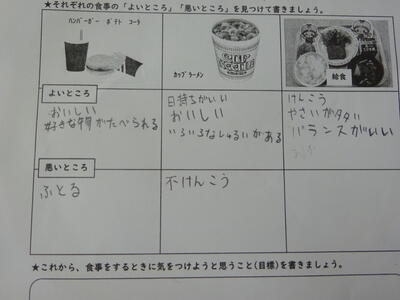 ★それぞれの食事の「よいところ」「悪いところ」を見つけて書きましょう。
ハンバーガー ポテト コーラ
カップラーメン
CUP NOODLE
給食
よいところ
おいしい
好きな物がたべられる
日持ちがいい
おいしい
いろいろなしゅるいがある
けんこう
やさいがタタい
バランスがいい
悪いところ
ふとる
不けんこう
★これから、食事をするときに気をつけようと思うこと(目標)を書きましょう。